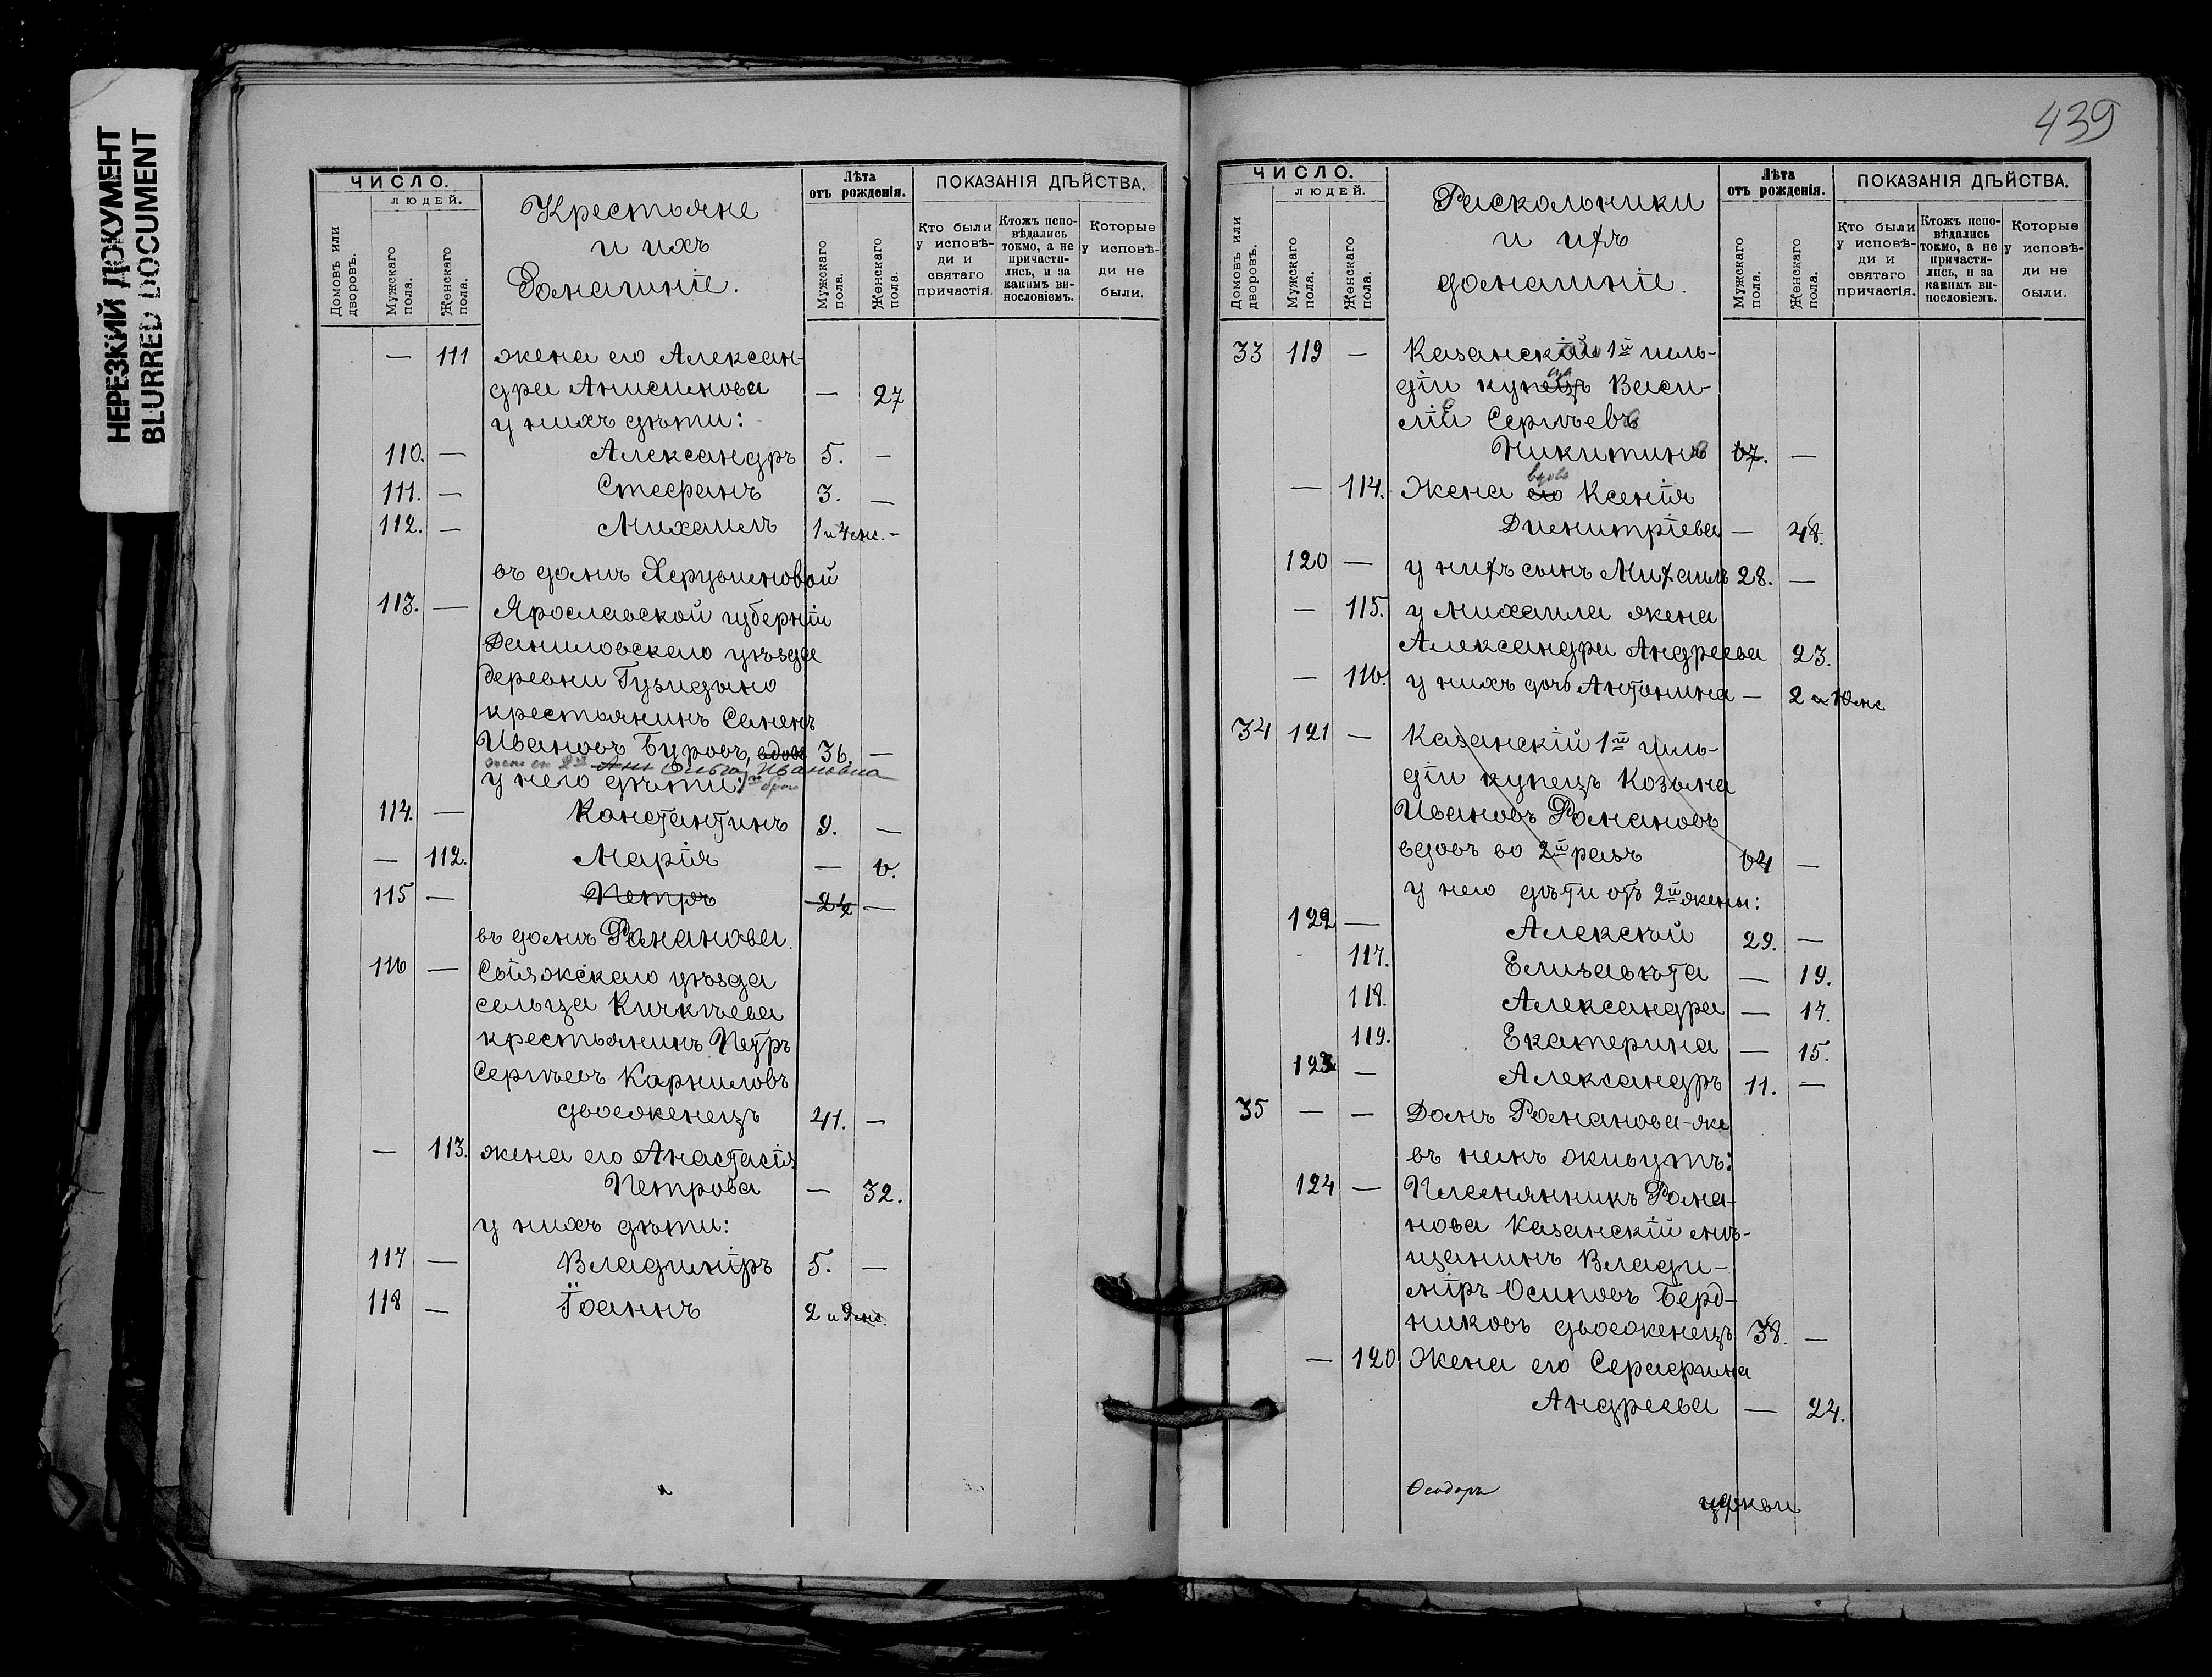 НЕРЕЗКИЙ ДОКУМЕНТ
BLURRED DOCUMENT
ЧИСЛО.
ЛЮДЕЙ.
Домовъ или дворовъ.
Мужскаго пола.
Женскаго пола.
Крестьяне
и ихъ
домашніе.
Лѣта
отъ рожденія.
Мужскаго пола.
Женскаго пола.
ПОКАЗАНІЯ ДѢЙСТВА.
Кто были у исповѣди и святаго причастія.
Ктожъ исповѣдались токмо, а не причастились, и за какимъ винословіемъ.
Которые у исповѣди не были.
— 111 жена его Алексан-
дра Анисимова — 27
у нихъ дѣти:
110. — Александръ 5. —
111. — Стефанъ 3. —
112. — Михаилъ 1 и 4 мс. —
въ домѣ
113. — Ярославской губерніи
Даниловскаго уѣзда
деревни
крестьянинъ Семенъ
Ивановъ Буровъ, вдовъ 36. —
Ольга Ивановна
у него дѣти:
114. — Константинъ 9. —
— 112. Марія — 6.
115 — Петръ
въ домѣ Романова.
116 — Свіяжскаго уѣзда
сельца Кичкѣева
крестьянинъ Петръ
Сергѣевъ Корниловъ
двоеженецъ 41. —
— 113. жена его Анастасія
Петрова — 32.
у нихъ дѣти:
117 — Владиміръ 5. —
118 — Іоаннъ 2 и 9 мс.
439
ЧИСЛО.
ЛЮДЕЙ.
Домовъ или дворовъ.
Мужскаго пола.
Женскаго пола.
Раскольники
и ихъ
домашніе.
Лѣта
отъ рожденія.
Мужскаго пола.
Женскаго пола.
ПОКАЗАНІЯ ДѢЙСТВА.
Кто были у исповѣди и святаго причастія.
Ктожъ исповѣдались токмо, а не причастились, и за какимъ винословіемъ.
Которые у исповѣди не были.
33 119 — Казанскій 1й гиль-
діи купецъ Васи-
лій Сергѣевъ
Никитинъ 67. —
вдова
— 114. Жена его Ксенія
Димитріева — 48.
120 — у нихъ сынъ Михаилъ 28. —
— 115. у Михаила жена
Александра Андреева 23.
— 116. у нихъ дочь Антонина — 2 и 10 мс
34 121 — Казанскій 1й гиль-
діи купецъ Козьма
Ивановъ Романовъ
вдовъ во 2й разъ 64 —
у него дѣти отъ 2й жены:
122 — Алексѣй 29. —
117. Елизавѣта — 19.
118. Александра — 17.
119. Екатерина — 15.
123 — Александръ 11. —
35 — — Домъ Романова-же
въ немъ живутъ:
124 — Племянникъ Рома-
нова Казанскій мѣ-
щанинъ Влади-
міръ Осиповъ Берд-
никовъ двоеженецъ 38. —
— 120 Жена его Серафима
Андреева — 24.
Ѳеодоръ
церкви